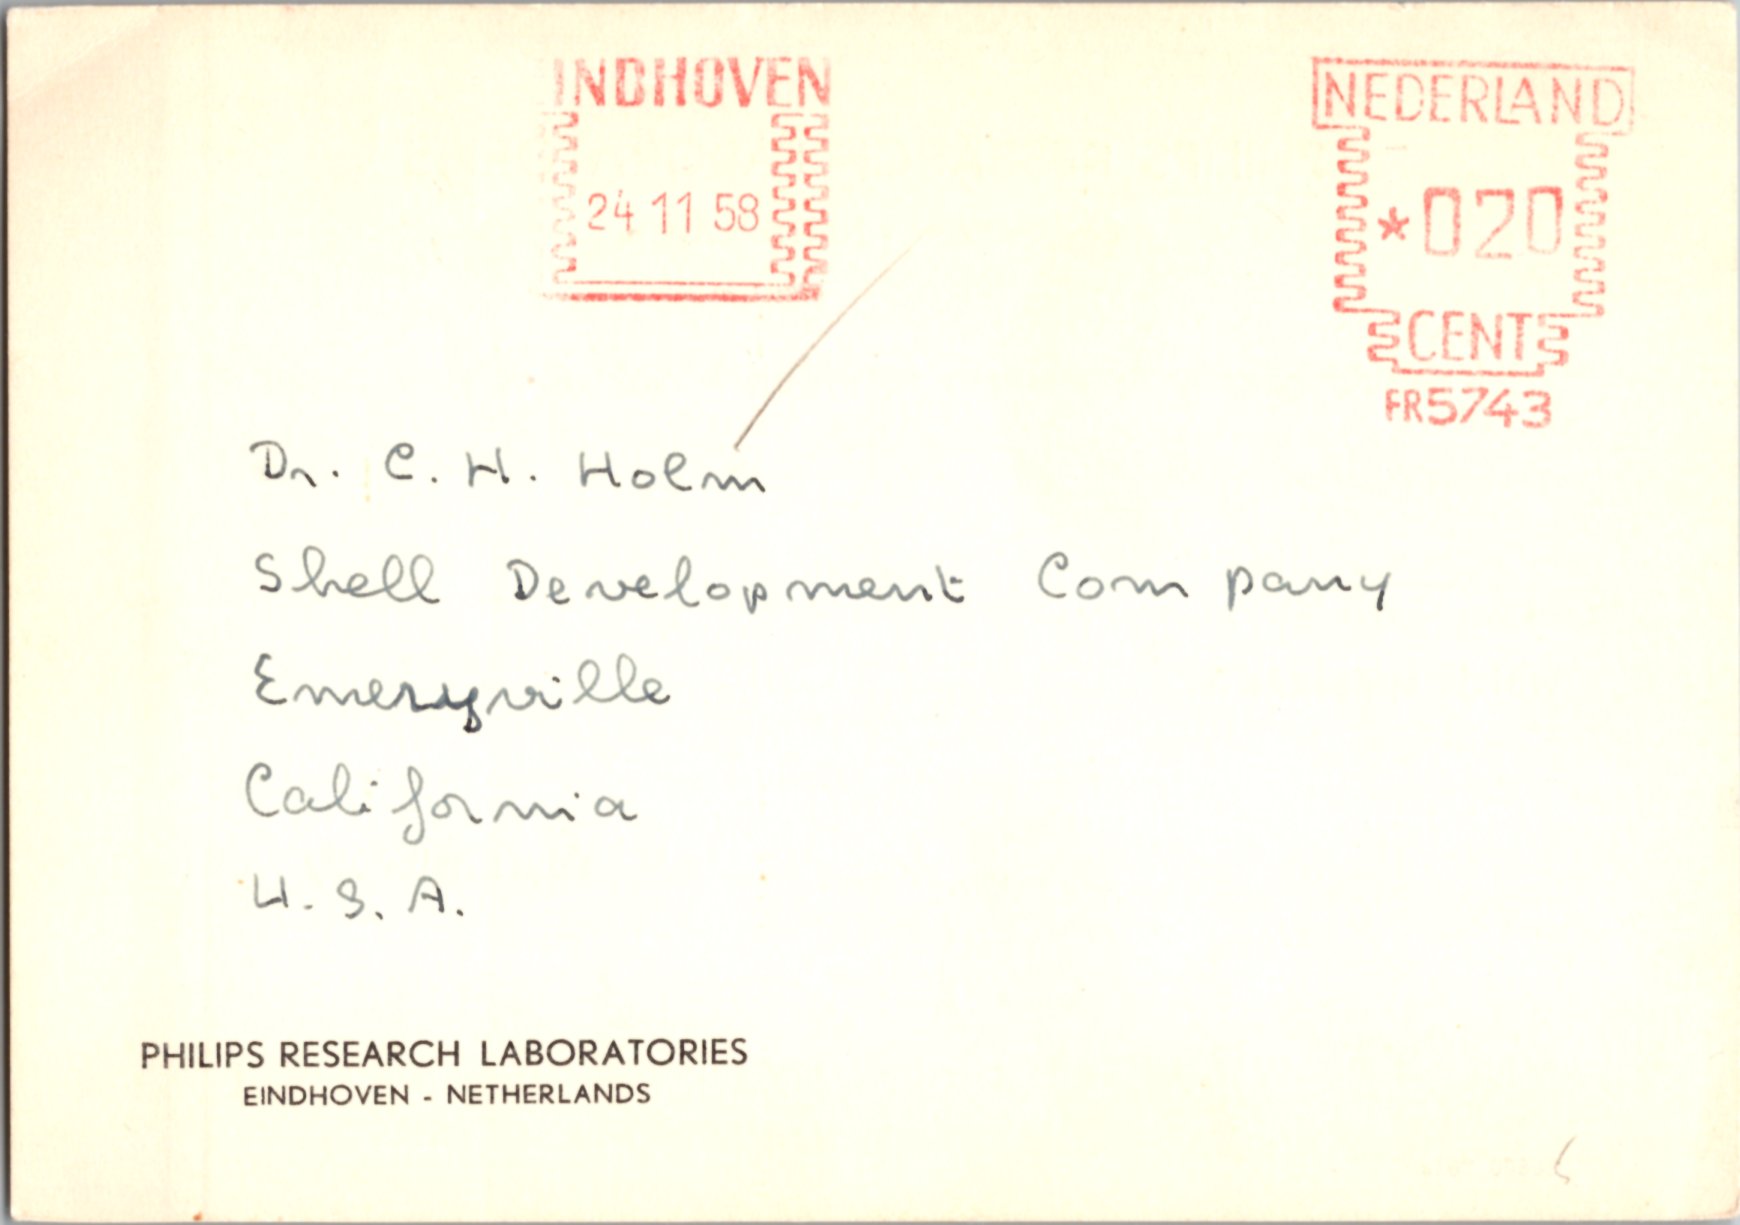 INDHOVEN
24 11 58
NEDERLAND
*020
CENT
FR5743
Dr. C. H. Holm
Shell Development Company
Emeryville
California
U. S. A.
PHILIPS RESEARCH LABORATORIES
EINDHOVEN - NETHERLANDS